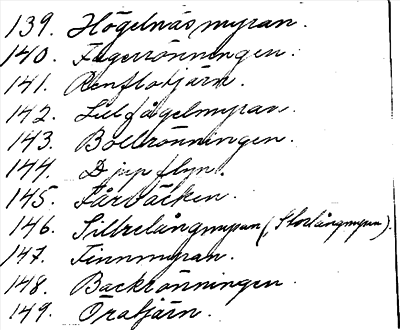 139. Högelnäsmyran.
140. Fagerrönningen.
141. Renflotjärn.
142. Lillfågelmyran.
143. Bollrönningen.
144. Djupflyn.
145. Fårbäcken.
146. Sillrelångmyran (Storlångmyran).
147. Finnmyran.
148. Backrönningen.
149. Öratjärn.